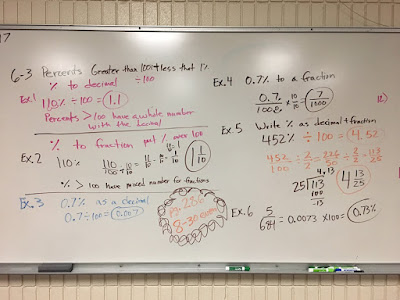 6-3 Percents Greater than 100% + less that 1%
% to decimal ÷100
Ex.1
110% ÷ 100 = 1.1
Percents > 100 have a whole number
with the decimal
% to fraction put % over 100
Ex. 2
110% 110/100 ÷ 10/10 = 11/10 = 1 1/10
% > 100 have mixed number for fractions
Ex. 3 0.7% as a decimal
0.7 ÷ 100 = 0.007
pg. 286
8-30 even
Ex. 4 0.7% to a fraction
0.7/100 × 10/10 = 7/1000
Ex. 5 Write % as decimal + fraction
452% ÷ 100 = 4.52
452/100 ÷ 2/2 = 226/50 ÷ 2/2 = 113/25
4 13/25
25 113
100
13
Ex. 6 5/684 = 0.0073 × 100 = 0.73%